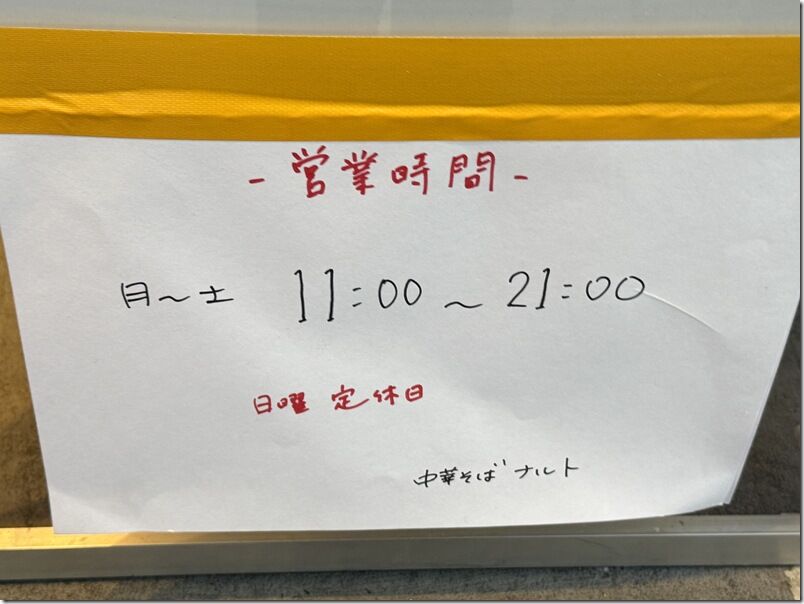 - 営業時間 -
月〜土 11:00 〜 21:00
日曜 定休日
中華そば ナルト